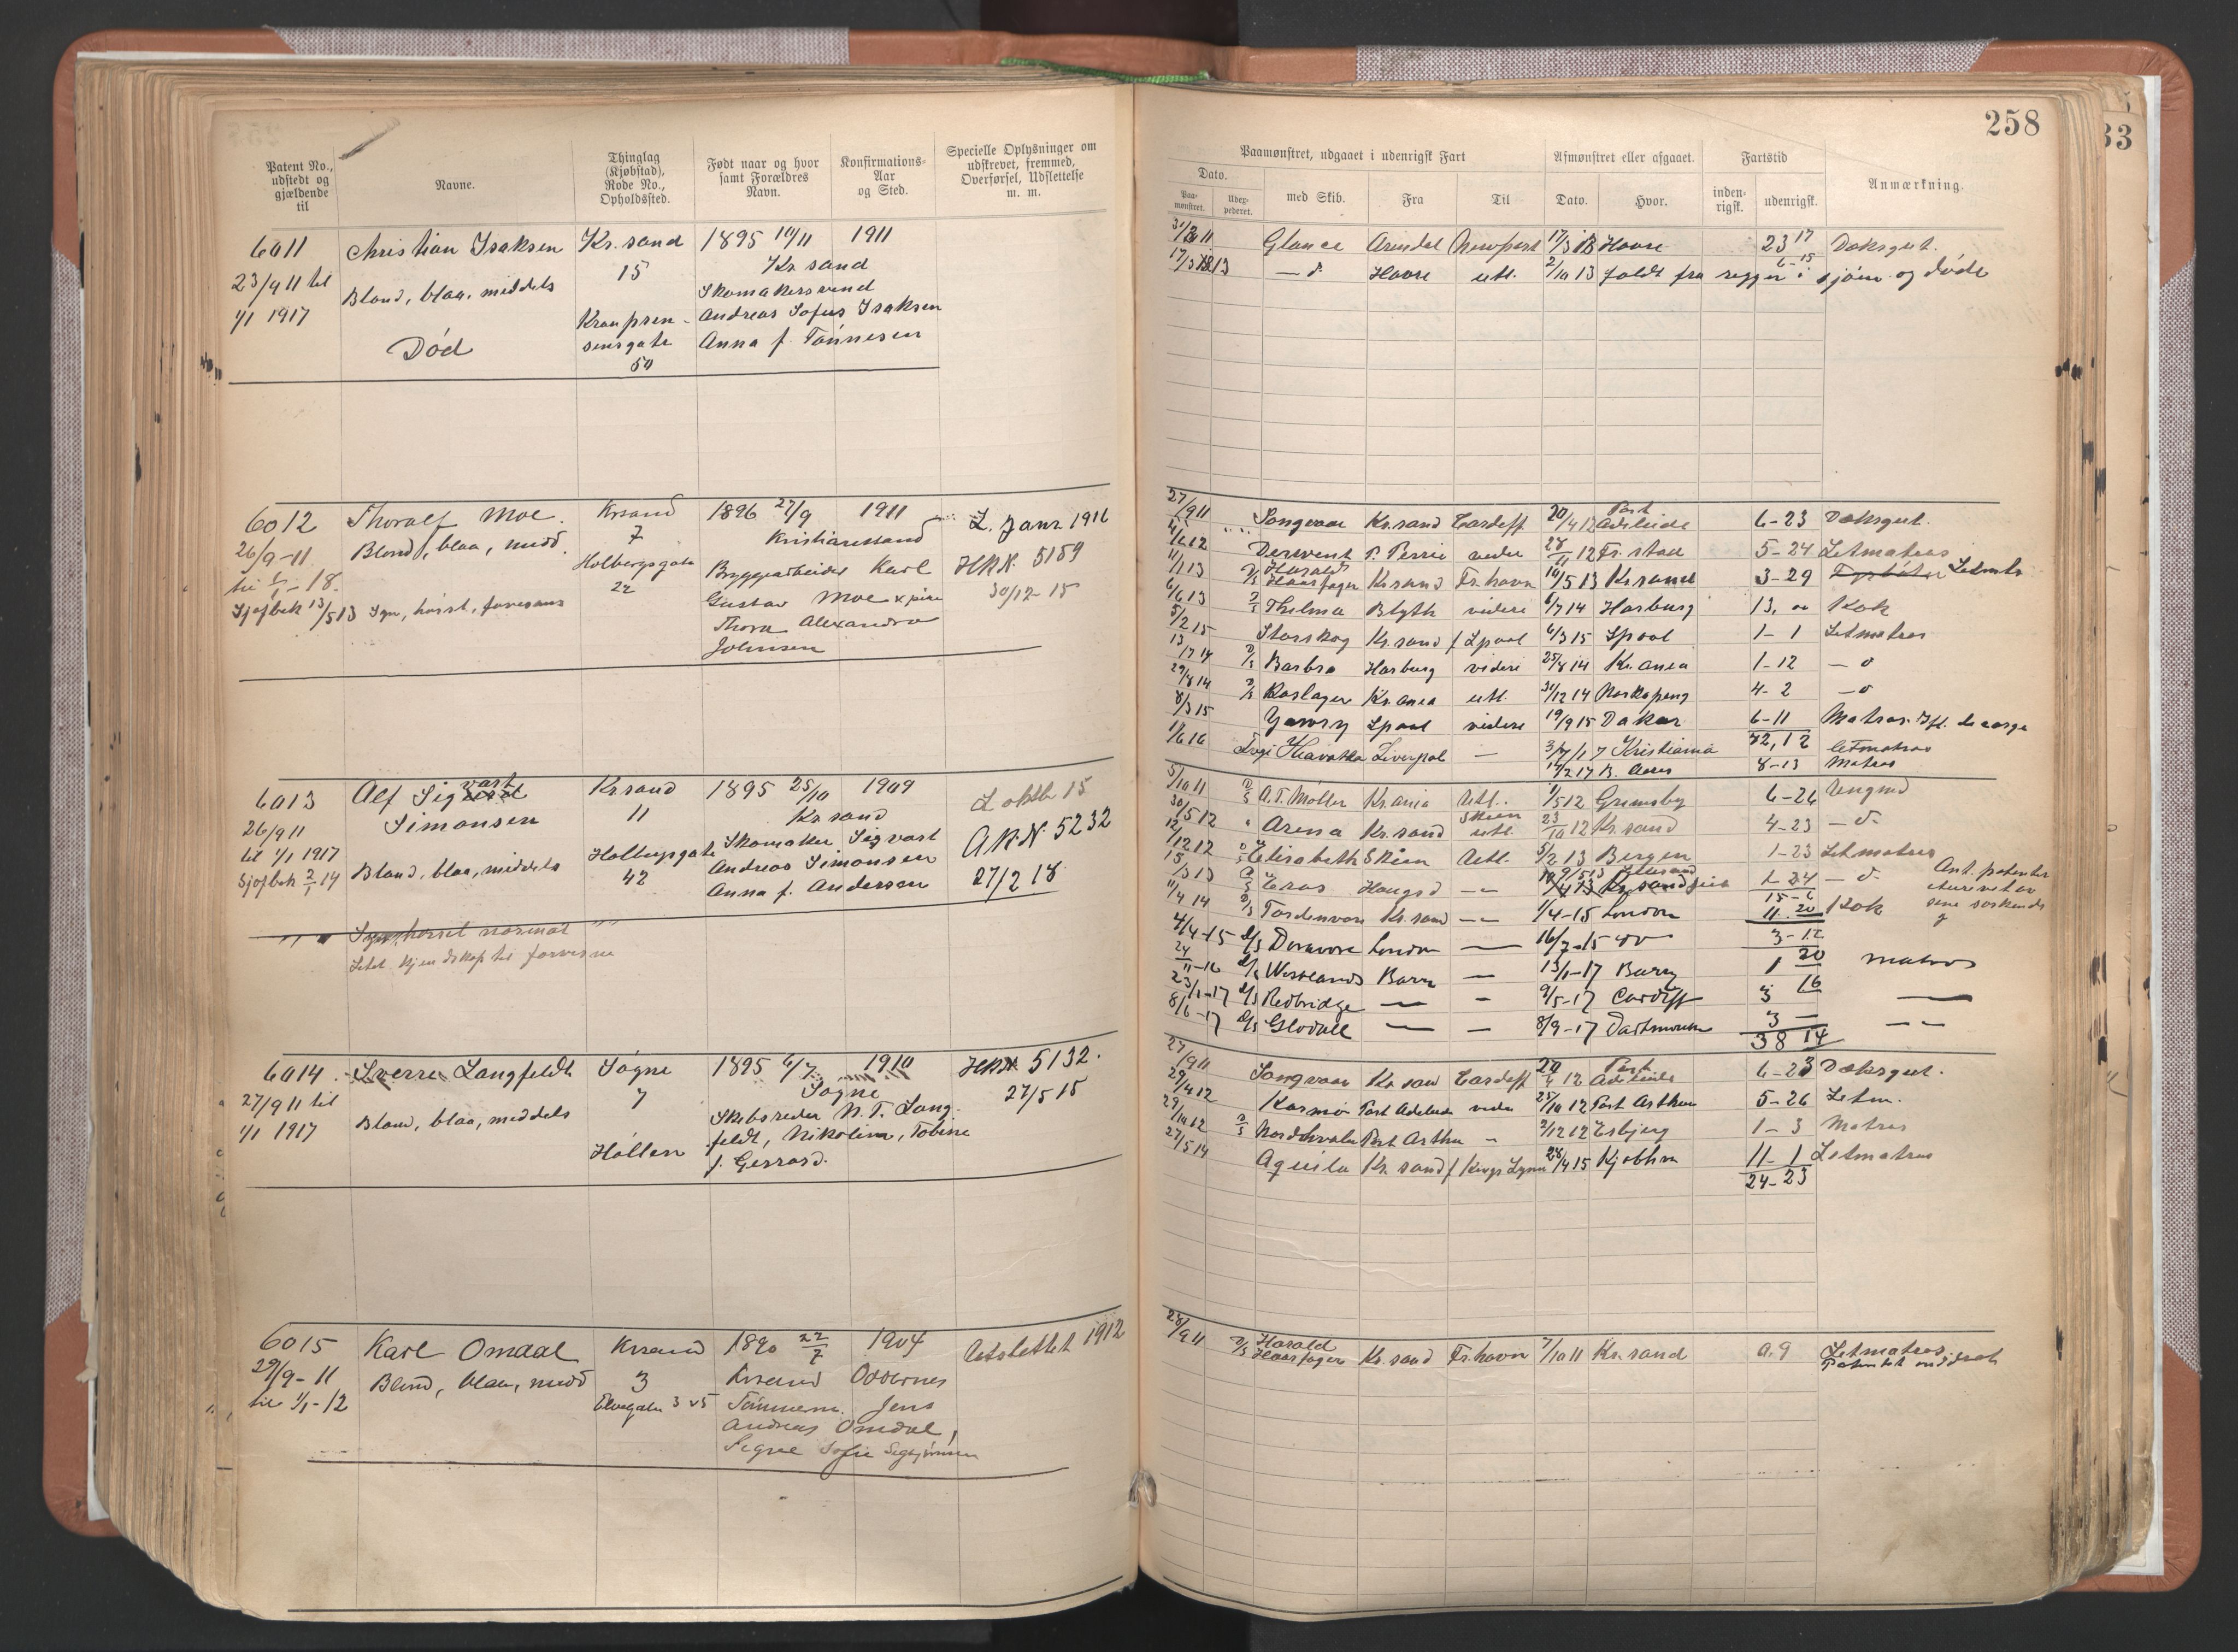 258
Patent No., udstedt og gjældende til
Navne.
Thinglag (Kjøbstad), Rode No., Opholdssted.
Født naar og hvor samt Forældres Navn.
Konfirmations-Aar og Sted.
Specielle Oplysninger om udskrevet, fremmed, Overførsel, Udslettelse m. m.
Paamønstret, udgaaet i udenrigsk Fart
Afmønstret eller afgaaet.
Fartstid
Anmærkning.
Dato.
med Skib.
Fra
Til
Dato.
Hvor.
inden-rigsk.
udenrigsk.
Paa-mønstret.
6011 Christian Isaksen Kr.sand 1895 10/11 1911
23/9 11 til 15 Kr sand
1/1 1917 Blond, blaa, middels Skomakersvend
Andreas Sofus Isaksen
Død sensgate Anna f. Tønnesen
50
Glance Arendal Newport 17/3 13 Havre 23 17 Dæksgut.
17/3 13 — d. Havre utl. 2/10 13 faldt fra reggen i sjøen og døde
6012 Thoralf Moe. Krsand 1896 27/9 1911 L. Janr 1916
26/9-11 Blond, blaa, midd. 7 Kristianssand
til 1/1-18. Holbergsgate Bryggearbeider Karl 5159
Sjøfbek 13/5 13 Syn, hørsel, farvesans 22 Gustav Moe 30/12 15
Thora Alexandra
Johnsen
27/9 11 Songvaar Kr.sand Cardiff 20/4 12 Port Adelaide 6-23 Dæksgut.
Derwent P. Perrie videre 28/11 12 Fr.stad 5-24 Letmatros
1/1 13 Harald Haarfager Kr.sand Fr.havn 10/5 13 Kr.sand 3-29 Letmtr
6/6 13 Thelma Blyth videre 6/7 14 Harburg 13, Kok
5/2 15 Storskog Kr.sand f Lpool 6/3 15 Lpool 1-1 Letmatros
13/7 14 Barbro Harburg videre 25/8 14 Kr.ania 1-12 — d
29/8 14 Roslagen Kr.ania utl. 31/12 14 Norkøping 4-2 — d
8/3 15 Spool videre 19/9 15 Dakar 6-11 Matros
1/6 16 Hiavatha Liverpool — 3/7/17 Kristiania 72,12 letmatros
10/2 17 B. Aires 8-13 Matros
6013 Alf Sigvart Krsand 1895 25/10 1909 L oktbr 15
26/9 11 Simonsen 11 Kr sand
til 1/1 1917 Skomaker Sigvart 5232
Sjøfbek 2/1 14 Blond, blaa, middels Holbergsgate Andreas Simonsen
42 Anna f. Andersen 27/2 18
Syn, hørsel normal
Letel kjendskap til farverne
5/10 11 A.T. Møller Kr.ania Utl. 1/5 12 Grimsby 6-26 Ungmd
30/5 12 Arena Kr.sand Skien utl. 23/10 12 Kr.sand 4-23 — d.
12/12 12 Elisabeth Skien Utl. 5/2 13 Bergen 1-23 Letmatros
15/3 13 Eros Haugsd — 1-24 — d.
11/4 14 Tordenvore Kr.sand — 1/4-15 London 11. 20 Kok
4/4-15 London — 16/7-15 3-12
24/11-16 Westlands Barry — 13/1-17 Barry 1 20 matros
23/1-17 Redbridge — — 9/5-17 Cardiff 3 16 —
8/6-17 — — 8/9-17 Dartmouth 3 — — —
38 14
6014 Sverre Langfeldt Søgne 1895 6/7 1910 5132.
27/9 11 til 7 Søgne 27/5 15
1/1 1917 Blond, blaa, middels Skibsreder N. T. Lang-
feldt, Nikoline, Tobine
Høllen f. Gerrard.
27/9 11 Songvaar Kr sand Cardiff 20/4 12 Port Adelaide 6-23 Dæksgut.
29/4 12 Karmø Port Adelaide videre 25/10 12 Port Arthur 5-26 Letm.
29/10 12 Nordhvalen Port Arthur — 2/12 12 Esbjerg 1-3 Matros
27/5 14 Aquila Kr.sand f Kings Lynn 28/4 15 Kjøbhvn 11-1 Letmatros
24-23
6015 Karl Omdal Krsand 1890 22/7 1904 Utslettet 1912
29/9-11 Blond, blaa, midd 3 Krsand Oddernes
til 1/1-12 Elvegaten 35 Tømmerm. Jens
Andreas Omdal,
Signe Sofie
28/9 11 Harald Haarfager Kr.sand Fr.havn 7/10 11 Kr.sand 0.9 Letmatros